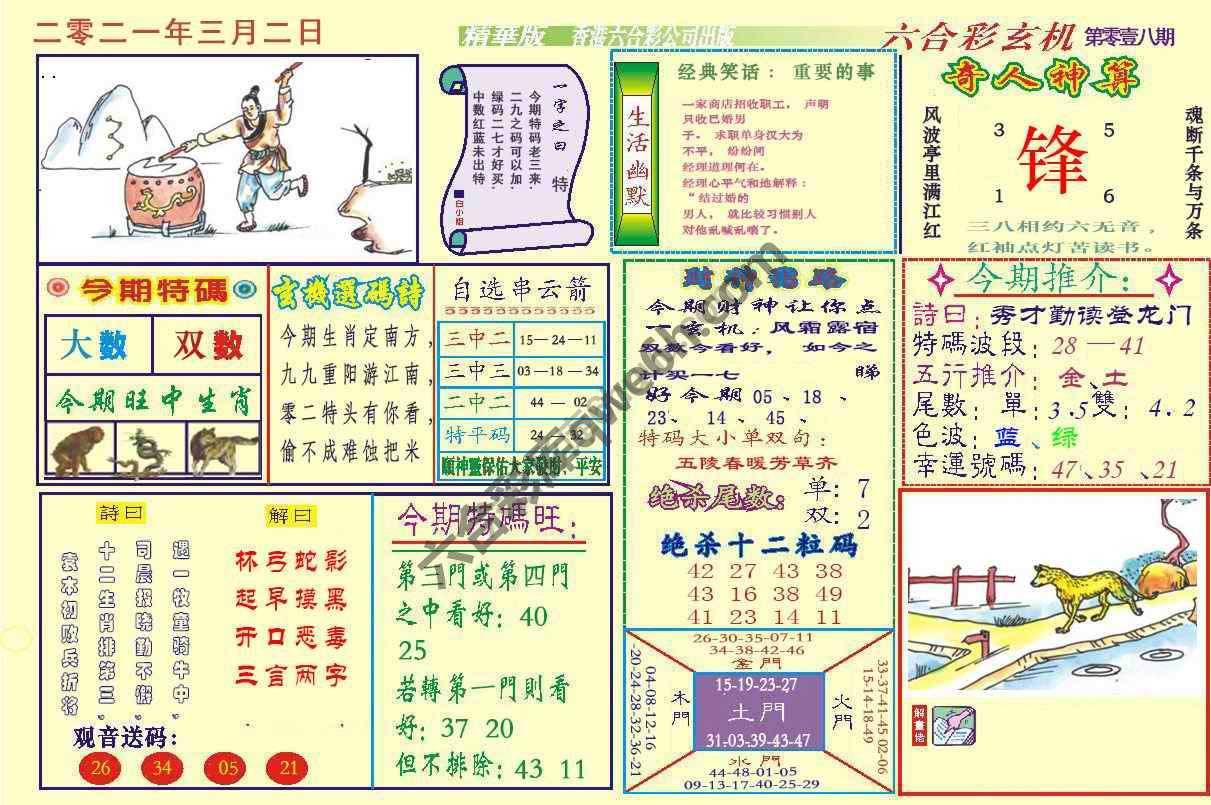 二零二一年三月二日
精華版 香港六合彩公司出版
六合彩玄机 第零壹八期
一字之曰 特
今期特码老三来
二九之码可以加
绿码二七才好买
中数红蓝未出特
白小姐
生活幽默
经典笑话：重要的事
一家商店招收职工， 声明
只收已婚男
子。 求职单身汉大为
不平， 纷纷问
经理道理何在。
经理心平气和地解释：
“结过婚的
男人， 就比较习惯别人
对他乱喊乱嚷了。
奇人神算
风波亭里满江红
3 5
锋
1 6
魂断千条与万条
三八相约六无音，
红袖点灯苦读书。
今期特碼
大數 双數
今期旺中生肖
玄機選碼詩
今期生肖定南方，
九九重阳游江南，
零二特头有你看，
偷不成难蚀把米
自选串云箭
三中二 15—24—11
三中三 03—18—34
二中二 44—02
特平码 24—32
願神靈保佑大家發財、平安
今期财神让你点
一玄机：风霜露宿
双数今看好， 如今之
计买一七 睇
好今期 05 、18 、
23、 14 、45 、
特码大小单双句：
五陵春暖芳草齐
绝杀尾数： 单：7
双：2
绝杀十二粒码
42 27 43 38
43 16 38 49
41 23 14 11
今期推介：
詩曰：秀才勤读登龙门
特碼波段：28 — 41
五行推介：金、土
尾數：單：3.5雙：4.2
色波：蓝、绿
幸運號碼：47、35 、21
詩曰
遇一牧童骑牛中，
司晨报晓勤不假，
十二生肖排第三，
袁本初败兵折将
解曰
杯弓蛇影
起早摸黑
开口恶毒
三言两字
观音送码：
26 34 05 21
今期特碼旺：
第三門或第四門
之中看好：40
25
若轉第一門則看
好：37 20
但不排除：43 11
26-30-35-07-11
34-38-42-46
金門
04-08-12-16
-20-24-28-32-36-21
木門
15-19-23-27
土門
31-03-39-43-47
火門
33-37-41-45 02-06
15-14-18-49
水門
44-48-01-05
09-13-17-40-25-29
解畫佬